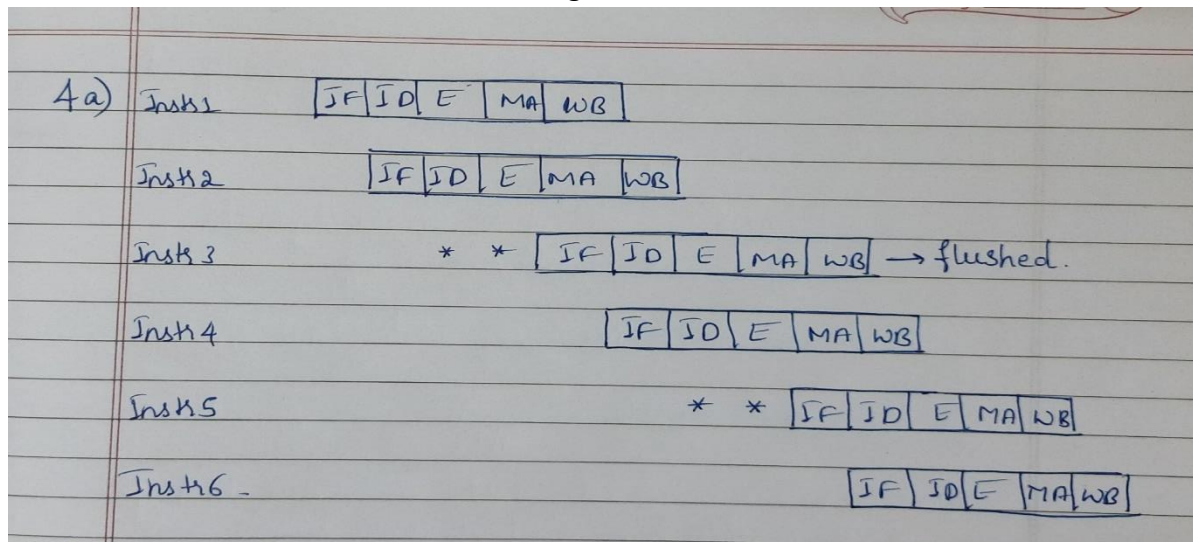 4a) Instr1 IF ID E MA WB
Instr2 IF ID E MA WB
Instr 3 * * IF ID E MA WB → flushed.
Instr 4 IF ID E MA WB
Instr5 * * IF ID E MA WB
Instr6 - IF ID E MA WB